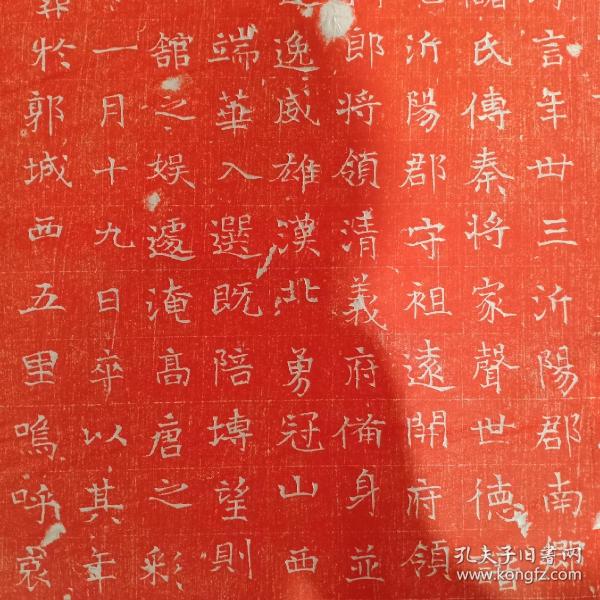 言年丗三沂陽郡南鄉
氏傳秦將家聲世德譜
沂陽郡守祖遠開府領
郎將領清義府備身並
逸威雄漢北勇冠山西
端華入選既陪博望則
舘之娱遽淹高唐之彩
一月十九日卒以其年
於郭城西五里嗚呼哀
孔夫子旧书网
www.kongfz.com